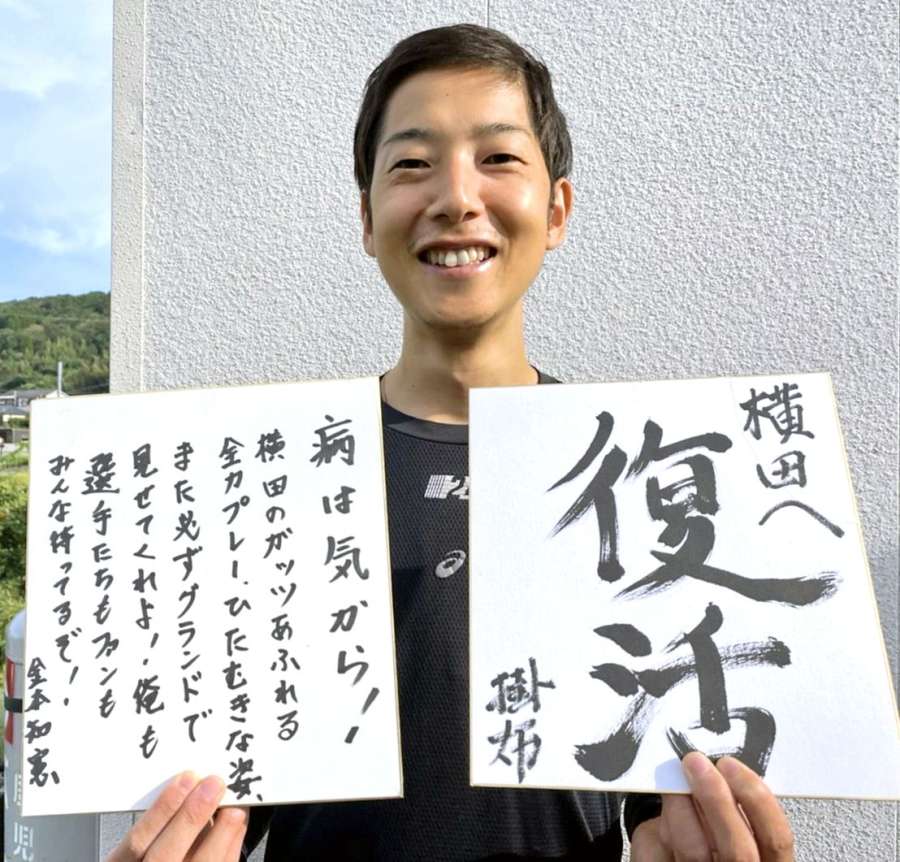 病は気から!!
横田のガッツあふれる
全力プレー、ひたむきな姿、
また必ずグランドで
見せてくれよ!俺も
選手たちもファンも
みんな待ってるぞ!!
金本知憲
横田へ
復活
掛布